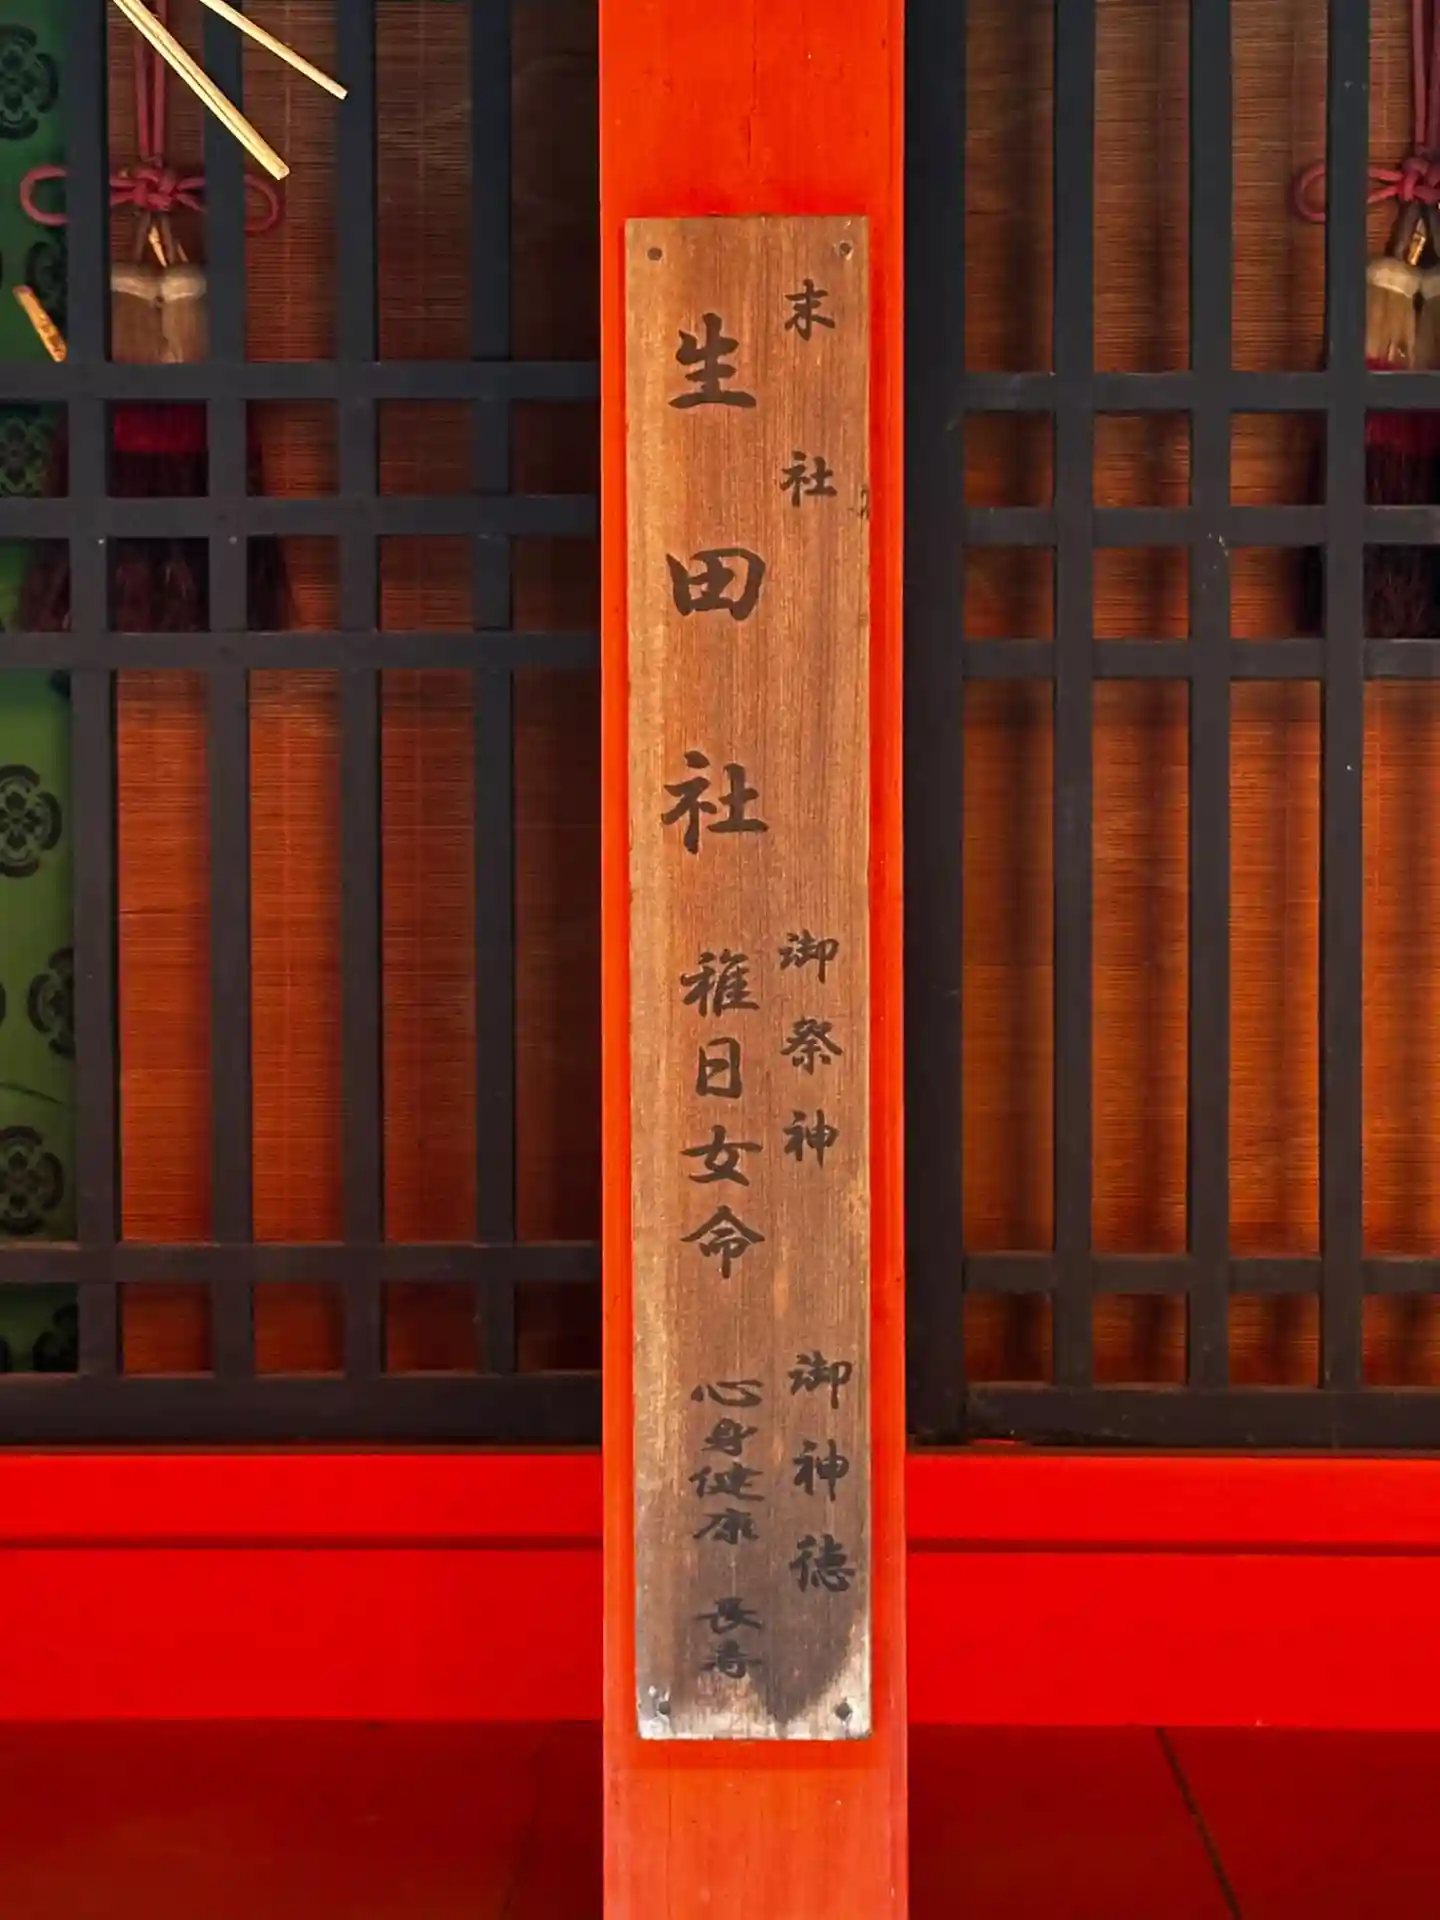 末社
生田社
御祭神
稚日女命
御神徳
心身健康 長寿